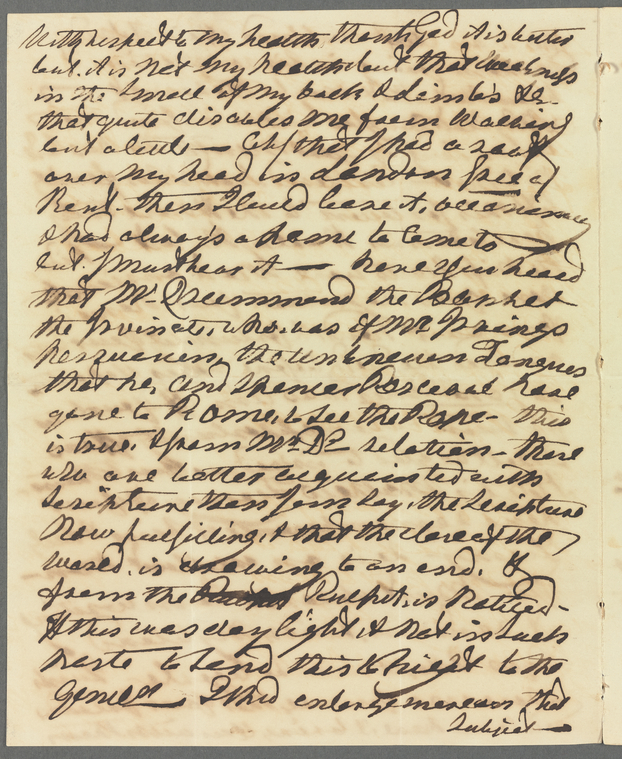 With respect to my health thank God it is better
but it is not my health but that weakness
in the Small of my back & limbs &c
that quite disables me from Walking
but a little — Oh that I had a roof
over my head in London free of
Rent. then I could leave it, occasionally
& had always a home to Come to —
but I must bear it — have you heard
that Mr Drummond the Banker
the Irvinite, who was of Mr Irvings
persuasion, the unknown Tongues
that he, and Spencer Perceval have
gone to Rome, to see the Pope — this
is true, & from Mr Ds relation — those
who are better acquainted with
Scripture than I am say, the Scripture
Now fulfilling, & that the close of the
world is drawing to an end. &
from the Pulpit is Noticed —
If this was day light & Not in such
haste to send this to Night to the
I should enlarge more on that
Subject —